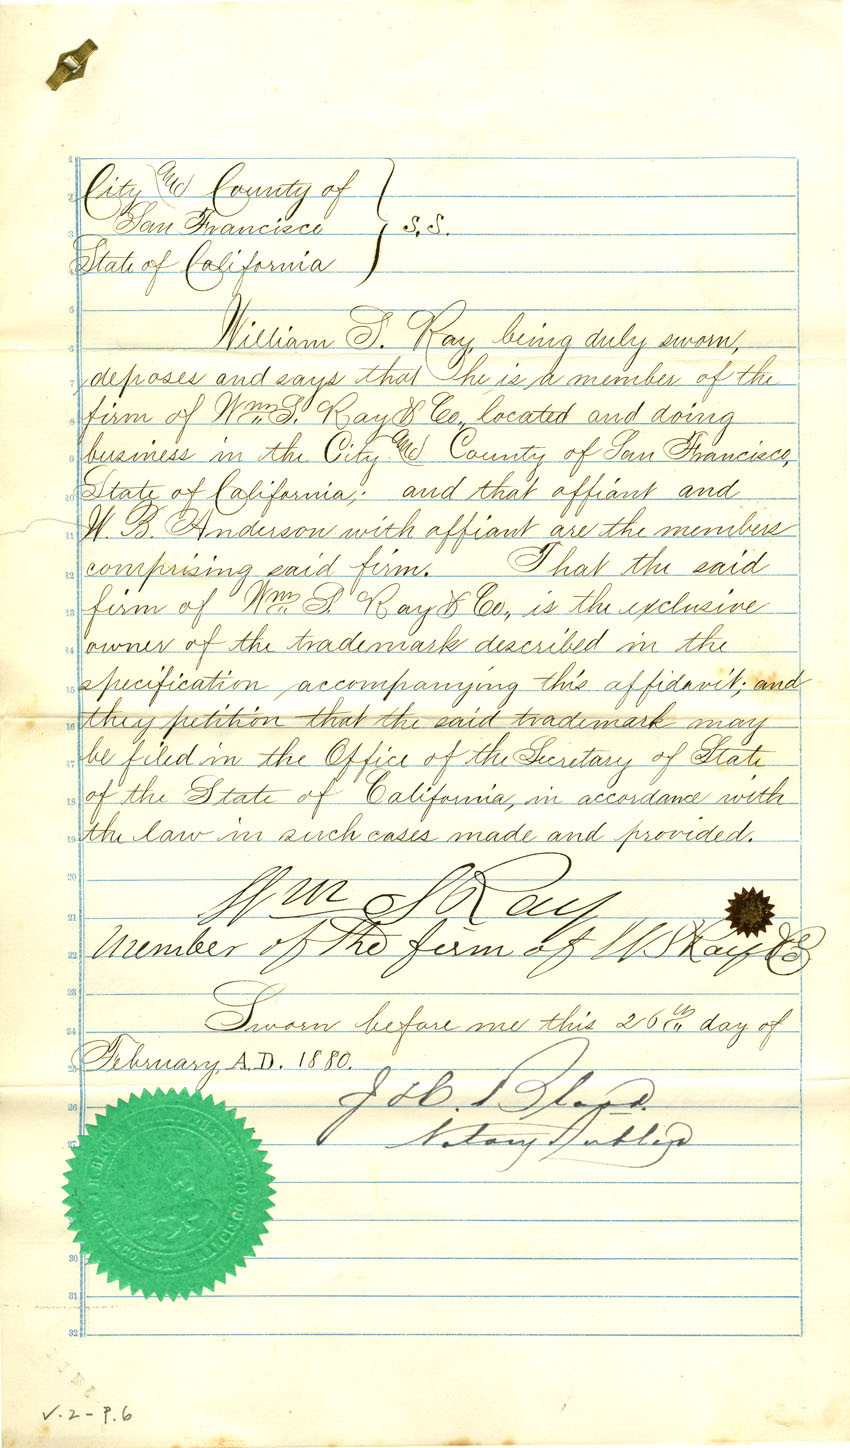 City and County of
San Francisco
State of California
} S.S.
William S. Ray, being duly sworn,
deposes and says that he is a member of the
firm of Wm. S. Ray & Co., located and doing
business in the City and County of San Francisco,
State of California; and that affiant and
W. B. Anderson with affiant are the members
comprising said firm. That the said
firm of Wm. S. Ray & Co., is the exclusive
owner of the trademark described in the
specification accompanying this affidavit; and
they petition that the said trademark may
be filed in the Office of the Secretary of State
of the State of California, in accordance with
the law in such cases made and provided.
Wm S Ray
Member of the firm of W S Ray & Co
Sworn before me this 26th day of
February, A.D. 1880.
Notary Public
V.2 - P.6